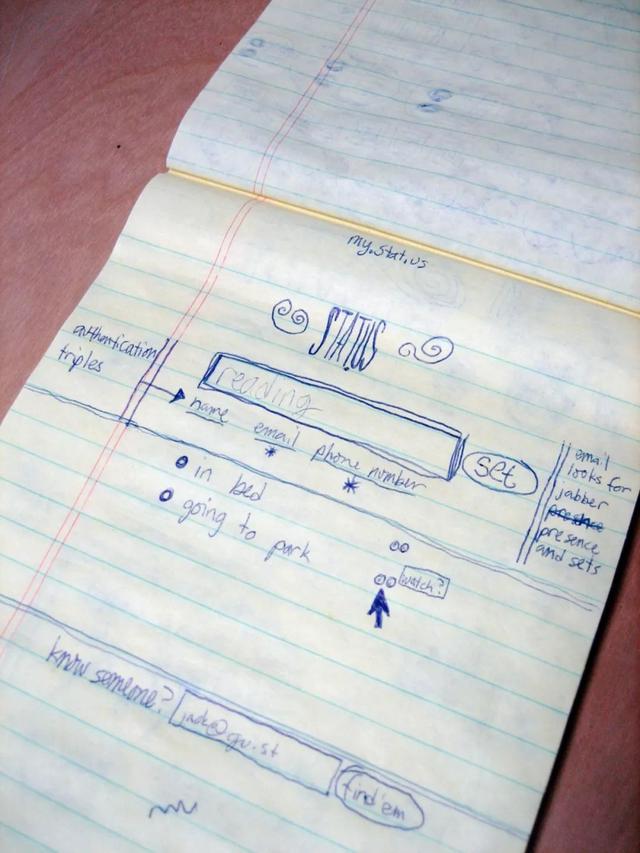 my.stat.us
STAT.US
authentication
triples
reading
name email phone number
* *
set
in bed
going to park
watch?
email
looks for
jabber
presence
presence
and sets
know someone?
jack@gu.st
find'em